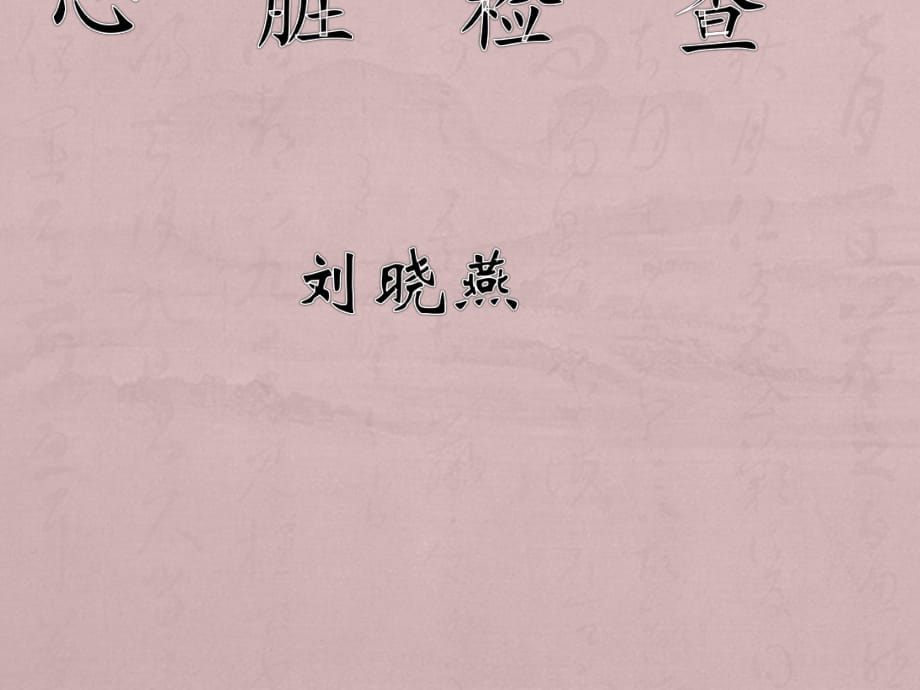 心脏检查
刘晓燕